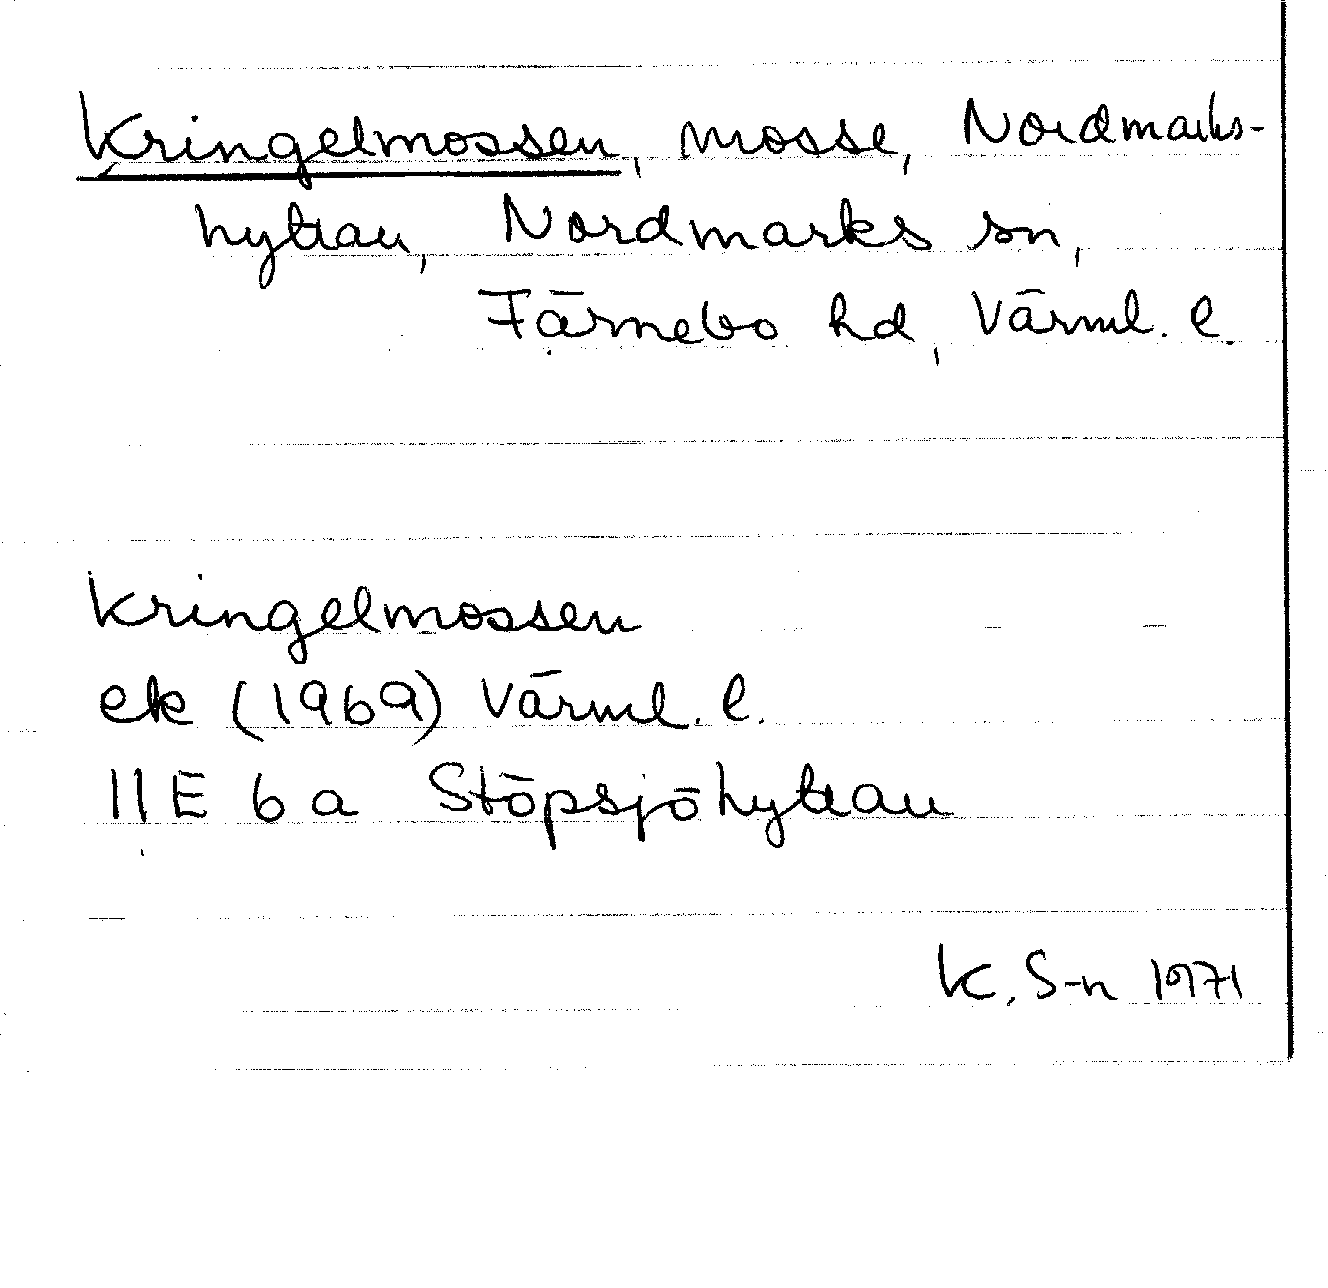 Kringelmossen, mosse, Nordmarks-
hyttan, Nordmarks sn,
Färnebo hd, Värml. l.
Kringelmossen
ek (1969) Värml. l.
11E 6a Stöpsjöhyttan
K. S-n 1971